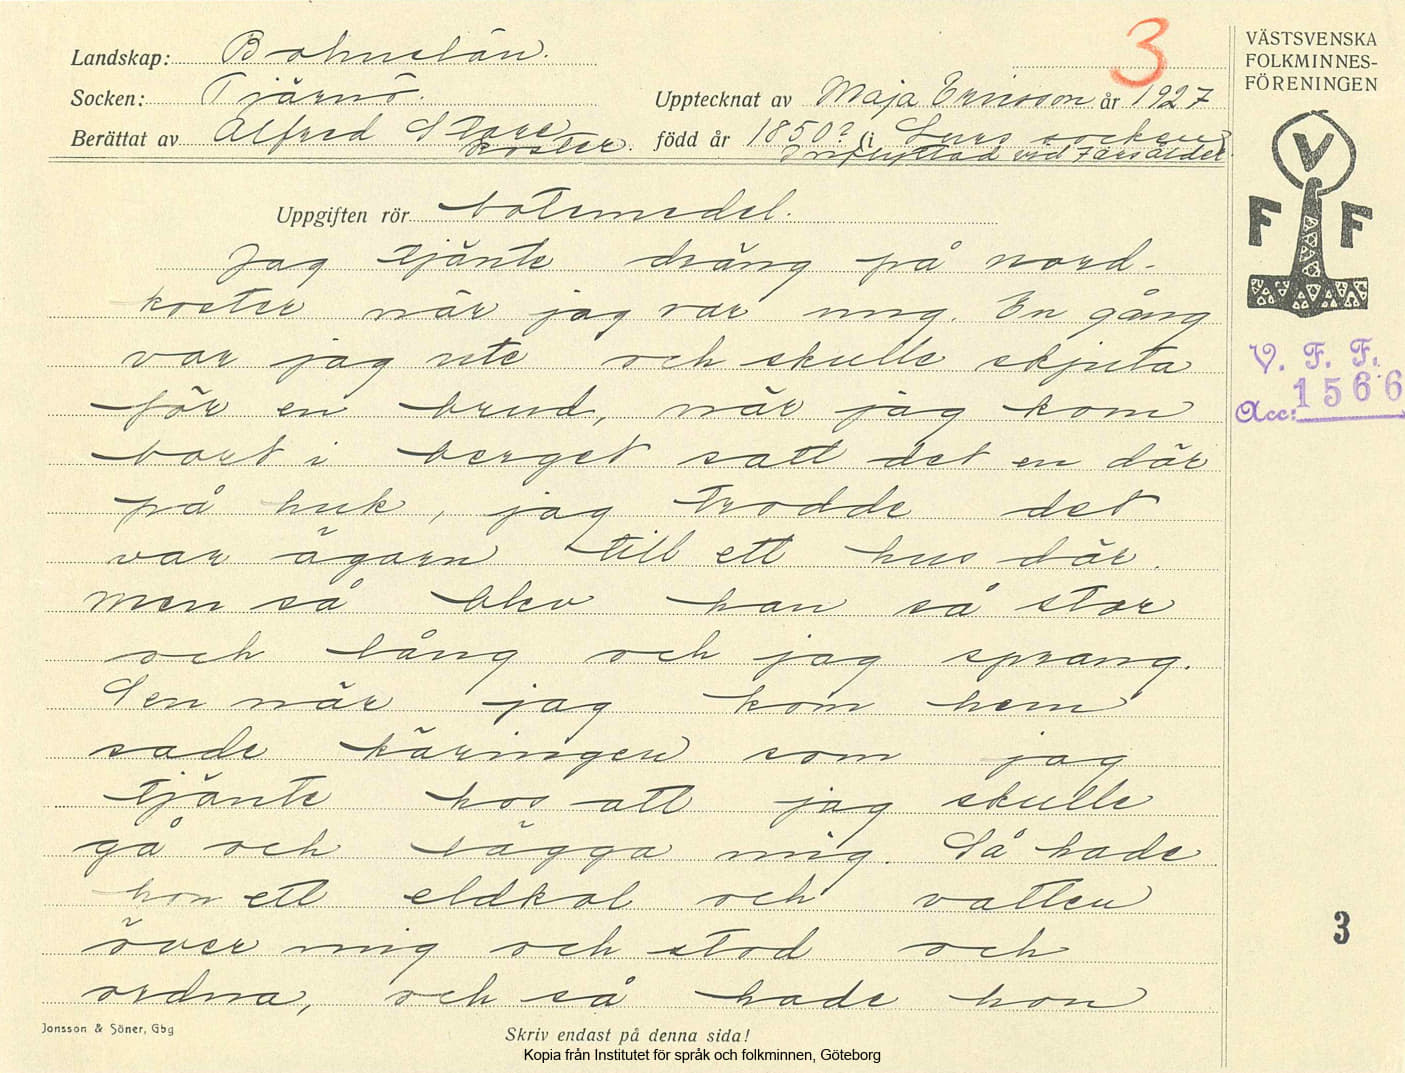 3
Landskap: Bohuslän.
Socken: Tjärnö.
Upptecknat av Maja Ericsson år 1927
Berättat av Alfred Store
Koster.
född år 1850? (i Lurs socken
Inflyttad vid 7 årsålder.
Uppgiften rör botemedel.
Jag tjänte dräng på nord-
koster när jag var ung. En gång
var jag ute och skulle skjuta
för en brud, när jag kom
bort i berget satt det en där
på huk, jag trodde det
var ägarn till ett hus där.
men så blev han så stor
och lång och jag sprang.
Sen när jag kom hem
sade käringen som jag
tjänte hos att jag skulle
gå och lägga mig. Så hade
hon ett eldkol och vatten
över mig och stod och
ordna, och så hade hon
Jonsson & Söner, Gbg
Skriv endast på denna sida!
Kopia från Institutet för språk och folkminnen, Göteborg
VÄSTSVENSKA
FOLKMINNES-
FÖRENINGEN
V
F F
V. F. F.
Acc: 1566
3